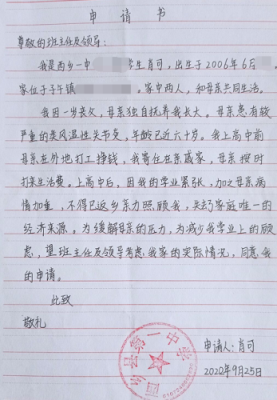 申请书
尊敬的班主任及领导：
我是西乡一中 学生肖可，出生于2006年6月
家位于子午镇 家中两人，和母亲共同生活。
我因一岁丧父，母亲独自抚养我长大。母亲患有较
严重的类风湿性关节炎，年龄已近六十岁。我上高中前
母亲在外地打工挣钱，我寄住在亲戚家，母亲按时
打来生活费。上高中后，因我的学业紧张，加之母亲病
情加重，不得已返乡亲力照顾我，失去了家庭唯一的
经济来源。为缓解母亲的压力，为减少我学业上的顾
虑，望班主任及领导考虑我家的实际情况，同意我
的申请。
此致
敬礼
申请人：肖可
2022年9月25日
西乡县第一中学